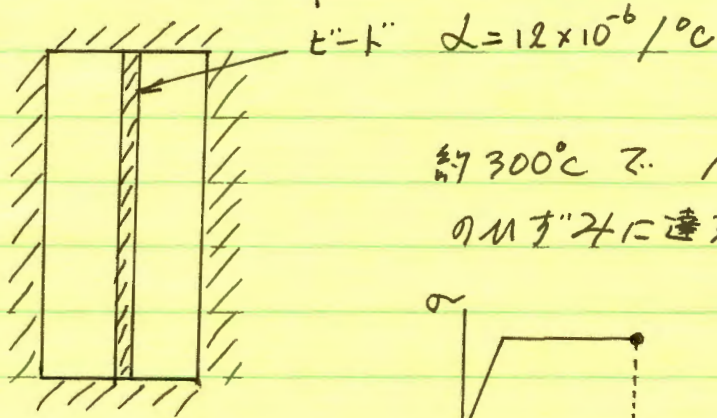 ビード α=12×10⁻⁶/°C
約300°Cで
のひずみに達
σ